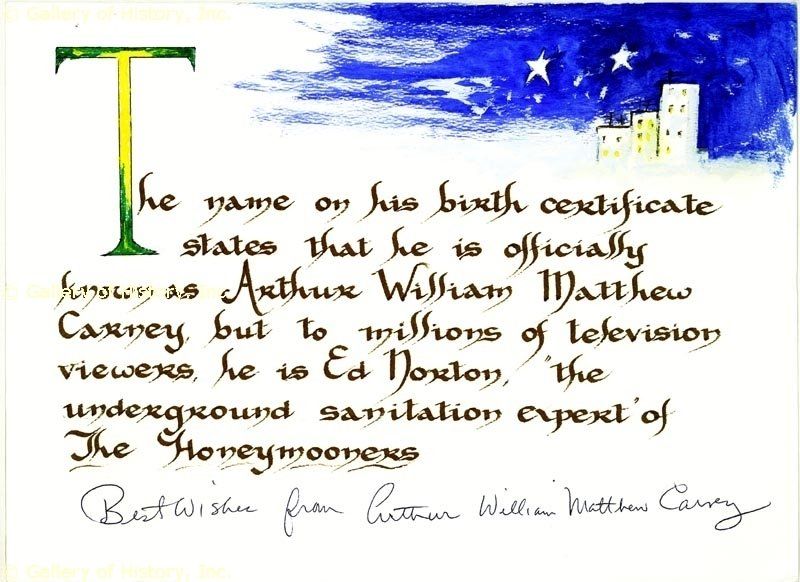 © Gallery of History, Inc.
The name on his birth certificate
states that he is officially
known as Arthur William Matthew
Carney, but to millions of television
viewers, he is Ed Norton, "the
underground sanitation expert" of
The Honeymooners
© Gallery of History, Inc.
Best Wishes from Arthur William Matthew Carney
© Gallery of History, Inc.